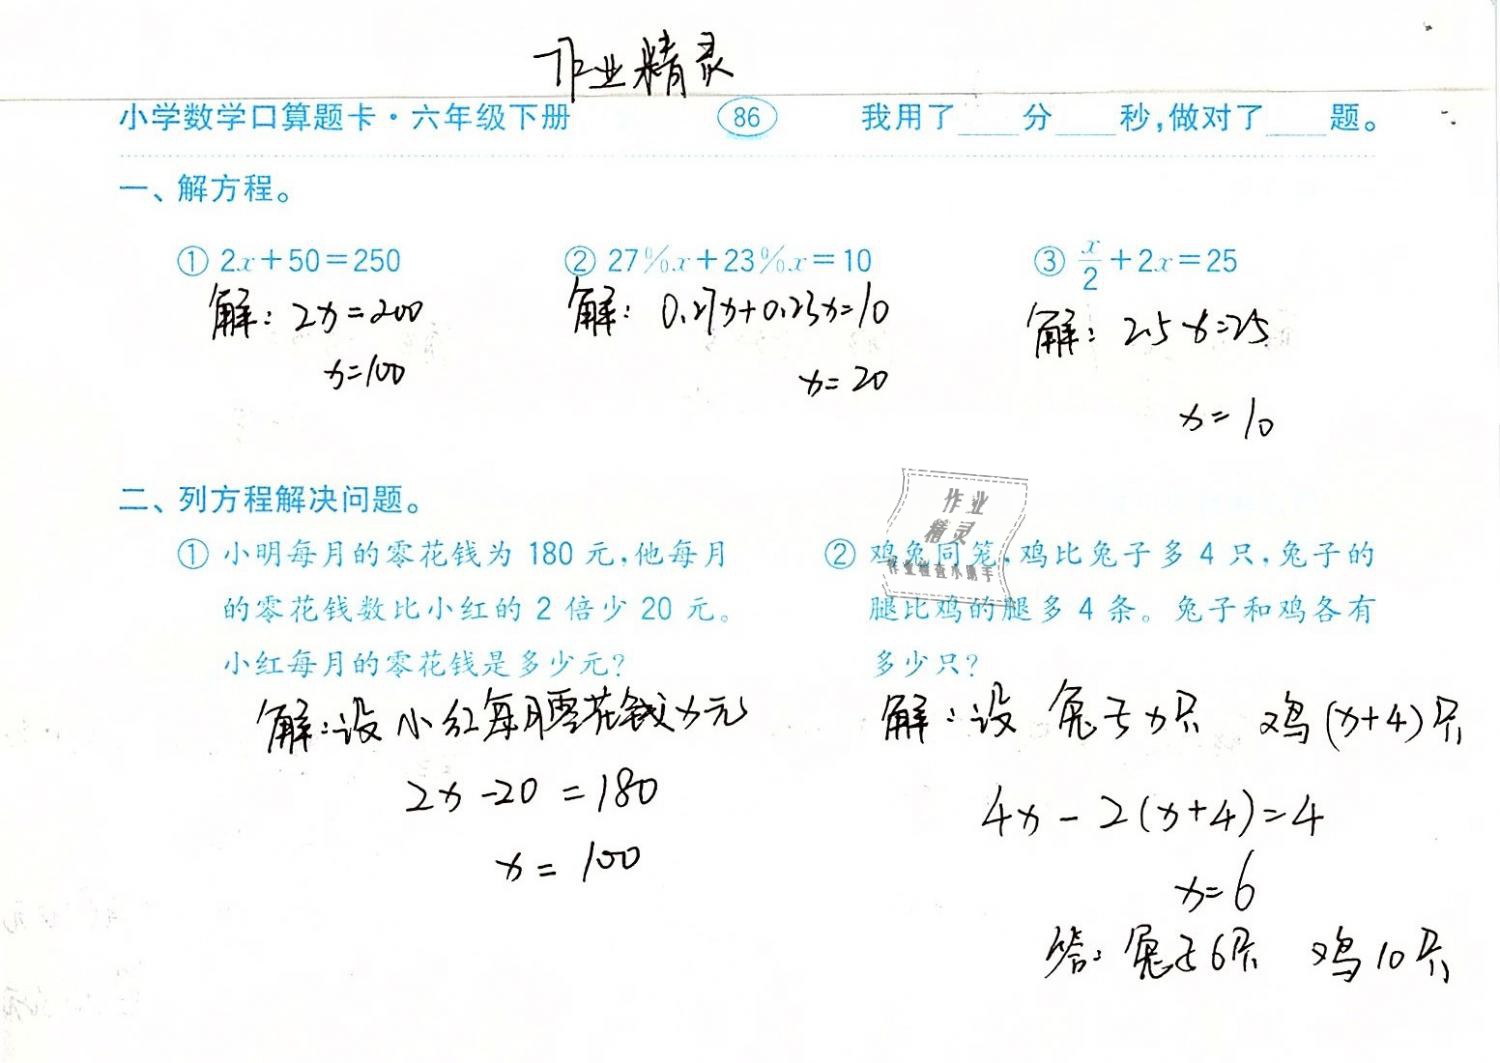 作业精灵
小学数学口算题卡·六年级下册 86 我用了____分____秒,做对了____题。
一、解方程。
① 2x+50=250 ② 27%x+23%x=10 ③ x/2+2x=25
解: 2x=200 解: 0.27x+0.23x=10 解: 2.5x=25
x=100 x=20 x=10
二、列方程解决问题。
① 小明每月的零花钱为 180 元,他每月
的零花钱数比小红的 2 倍少 20 元。
小红每月的零花钱是多少元?
解:设小红每月零花钱x元
2x-20=180
x=100
② 鸡兔同笼,鸡比兔子多 4 只,兔子的
腿比鸡的腿多 4 条。兔子和鸡各有
多少只?
解:设 兔子x只 鸡(x+4)只
4x-2(x+4)=4
x=6
答:兔子6只 鸡10只
作业
精灵
作业检查小助手